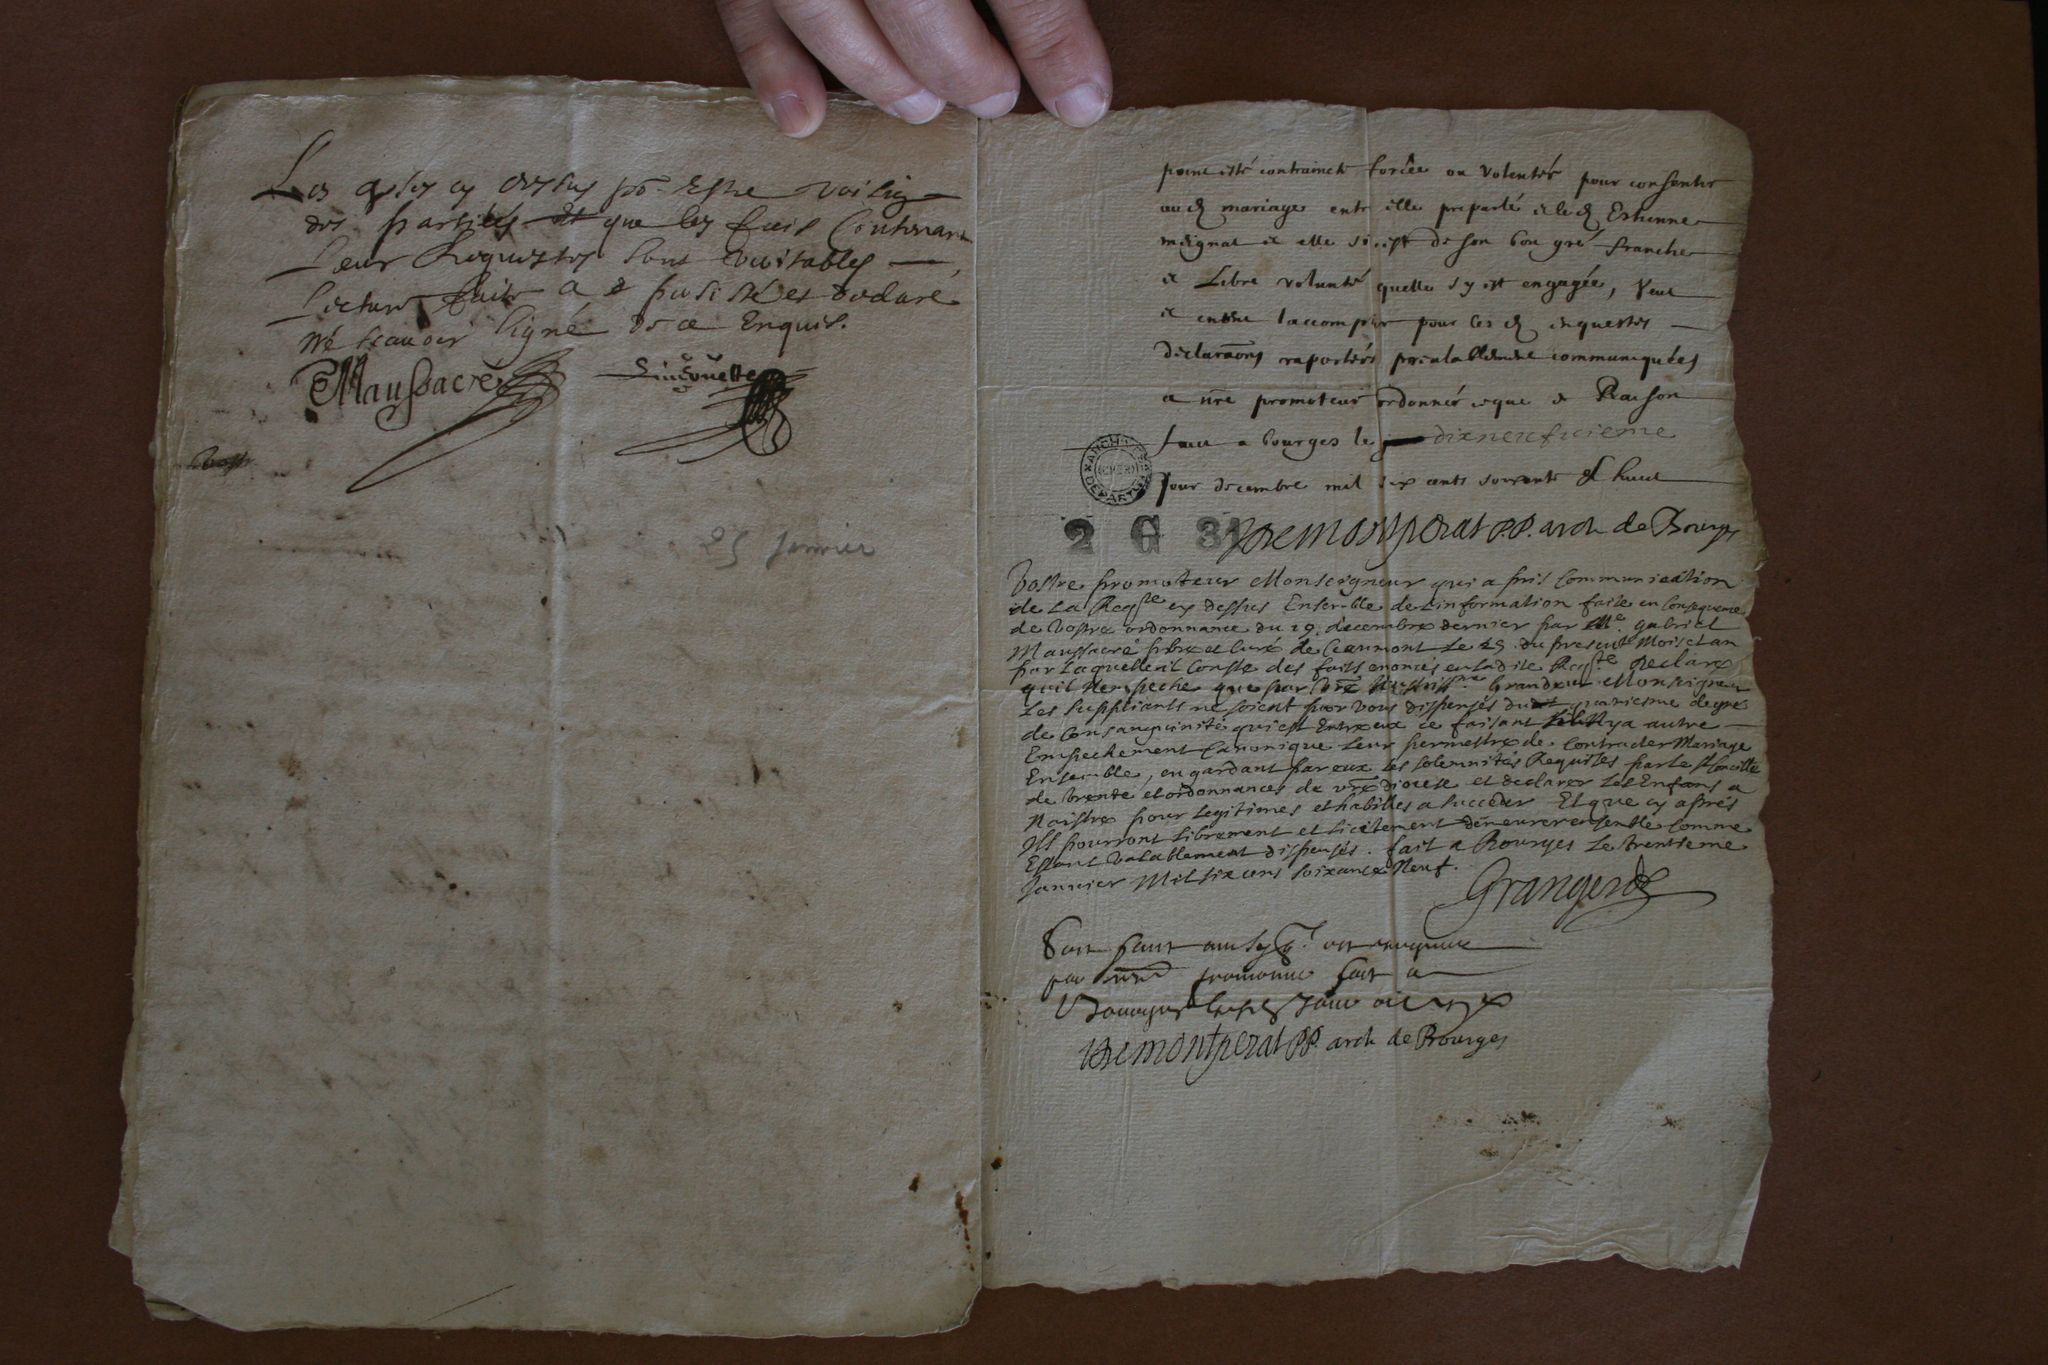 des parties que les faits Contenans
Leur Requestes sont veritables
Lecture faite a persisté et declaré
ne scavoir signé de ce Enquis.
Maussacré
25 janvier
point esté contraincte forcée ou volentée pour consentir
aud mariage entre elle preparlé et led Estienne
mignat et elle si est de son bon gré franche
et Libre volunté quelle sy est engagée, veut
et entent laccomplir pour les d enquestes
declaraõns raportées communiquées
a nre promoteur ordonner ce que de Raison
faict a bourges le dixneufvieme
jour decembre mil six cents soixante & huict
ARCHIVES DEPART CHER
2 G 31
de montpezat P.P. arch de Bourges
Vostre promoteur Monseigneur qui a pris Communication
de La Reqte cy dessus Ensemble de Linformation faite en Consequence
de Vostre ordonnance du 19. decembre dernier par Me. gabriel
Maussacré pbre et Curé de Le 25. du present Mois et an
par Laquelle il Conste des faits enoncés en Ladite Reqte declare
quil Nempeche que par Vre Illustrissme Grandeur Monseigneur
Les Suppliants ne soient par vous dispensés du quatriesme degré
de Consanguinité qui est Entre eux ce faisant Nya autre
Empechement Canonique Leur permettre de Contracter Mariage
Ensemble, en gardant par eux Les solemnités Requises par Le St Concille
de trente et ordonnances de vre diocese et declarer Les Enfans a
Naistre pour Legitimes et habilles a succeder Et que cy après
Ils pourront Librement et Licitement demeurer ensemble Comme
Estant Valablement dispensés. fait a Bourges Le trentieme
Janvier Mil six cens soixante Neuf.
Soit faict ainsy qil est requis
par nre promoteur fait a
Bourges
de montpezat P.P. arch de Bourges